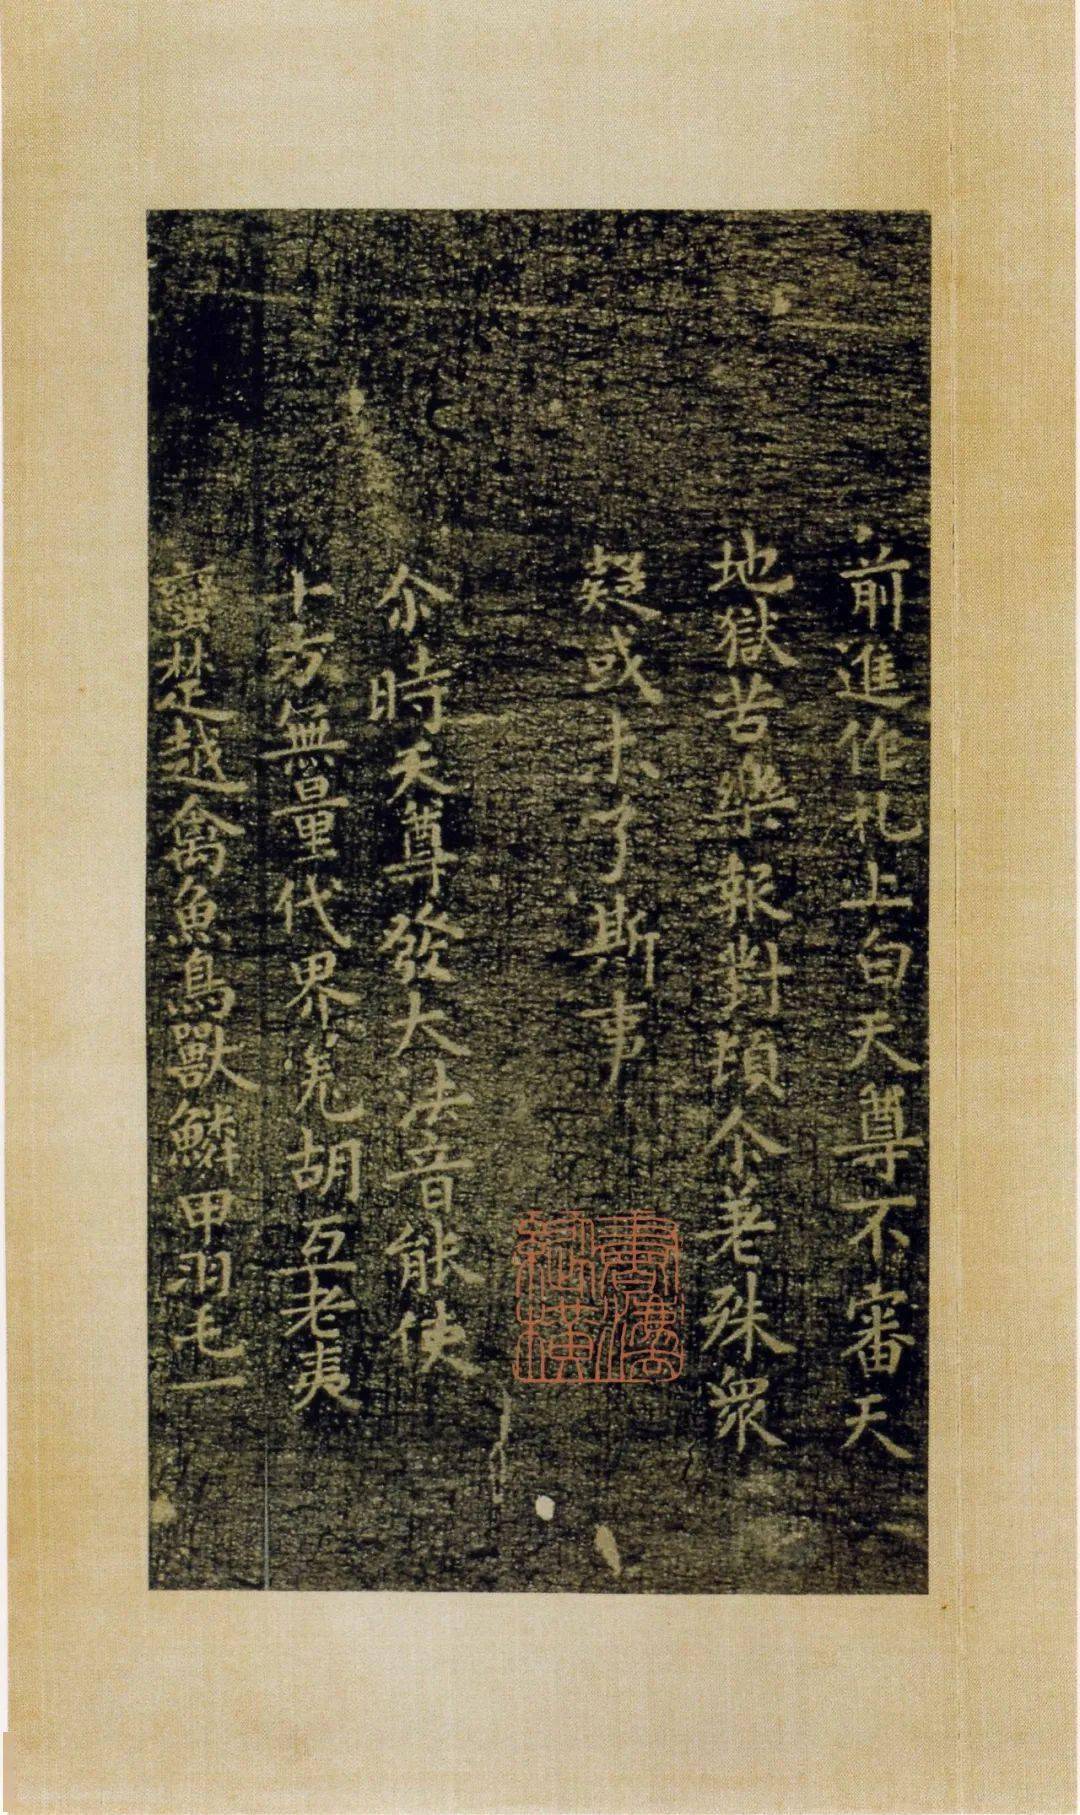 前進作礼上白天尊不審天
地獄苦樂報對頃尒差殊衆
疑或未了斯事
尒時天尊發大法音能使
十方無量代界羌胡互老夷
蠻楚越禽魚鳥獸鱗甲羽毛一
書法
縱橫